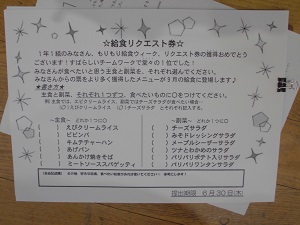 ☆給食リクエスト券☆
1年1組のみなさん、もりもり給食ウィーク、リクエスト券の獲得おめでとう
ございます！すばらしいチームワークで堂々の1位でした！
みなさんが食べたいと思う主食と副菜を、それぞれ選んでください。
みなさんからの票をより多く獲得したメニューが9月の給食に登場します♪
★書き方★
主食と副菜、それぞれ1つずつ、食べたいものに○をつけてください。
例：主食では、エビクリームライス、副菜ではチーズサラダが食べたい場合…
(○)えびクリームライス (○)チーズサラダ とそれぞれ記入する。
～主食～ どれか1つに○
( )えびクリームライス
( )ビビンバ
( )キムチチャーハン
( )あげパン
( )あんかけ焼きそば
( )ミートソーススパゲッティ
～副菜～ どれか1つに○
( )チーズサラダ
( )みそドレッシングサラダ
( )メープルシーザーサラダ
( )ツナとわかめのサラダ
( )パリパリポテト入りサラダ
( )パリパリワンタンサラダ
提出期限 6月30日(木)